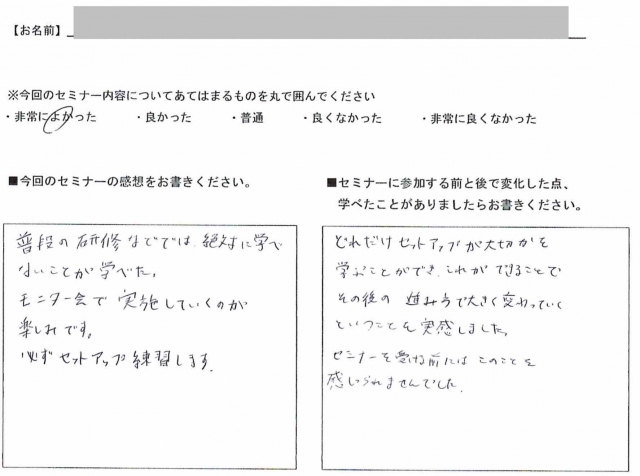 【お名前】
※今回のセミナー内容についてあてはまるものを丸で囲んでください
・非常によかった ・良かった ・普通 ・良くなかった ・非常に良くなかった
■今回のセミナーの感想をお書きください。
普段の研修などでは、絶対に学べ
ないことが学べた。
モニター会で実施していくのが
楽しみです。
必ずセットアップ練習します。
■セミナーに参加する前と後で変化した点、
学べたことがありましたらお書きください。
どれだけセットアップが大切かを
学ぶことができ、これができることで
その後の進み方で大きく変わっていく
ということを実感しました。
セミナーを受ける前にはこのことを
感じられませんでした。